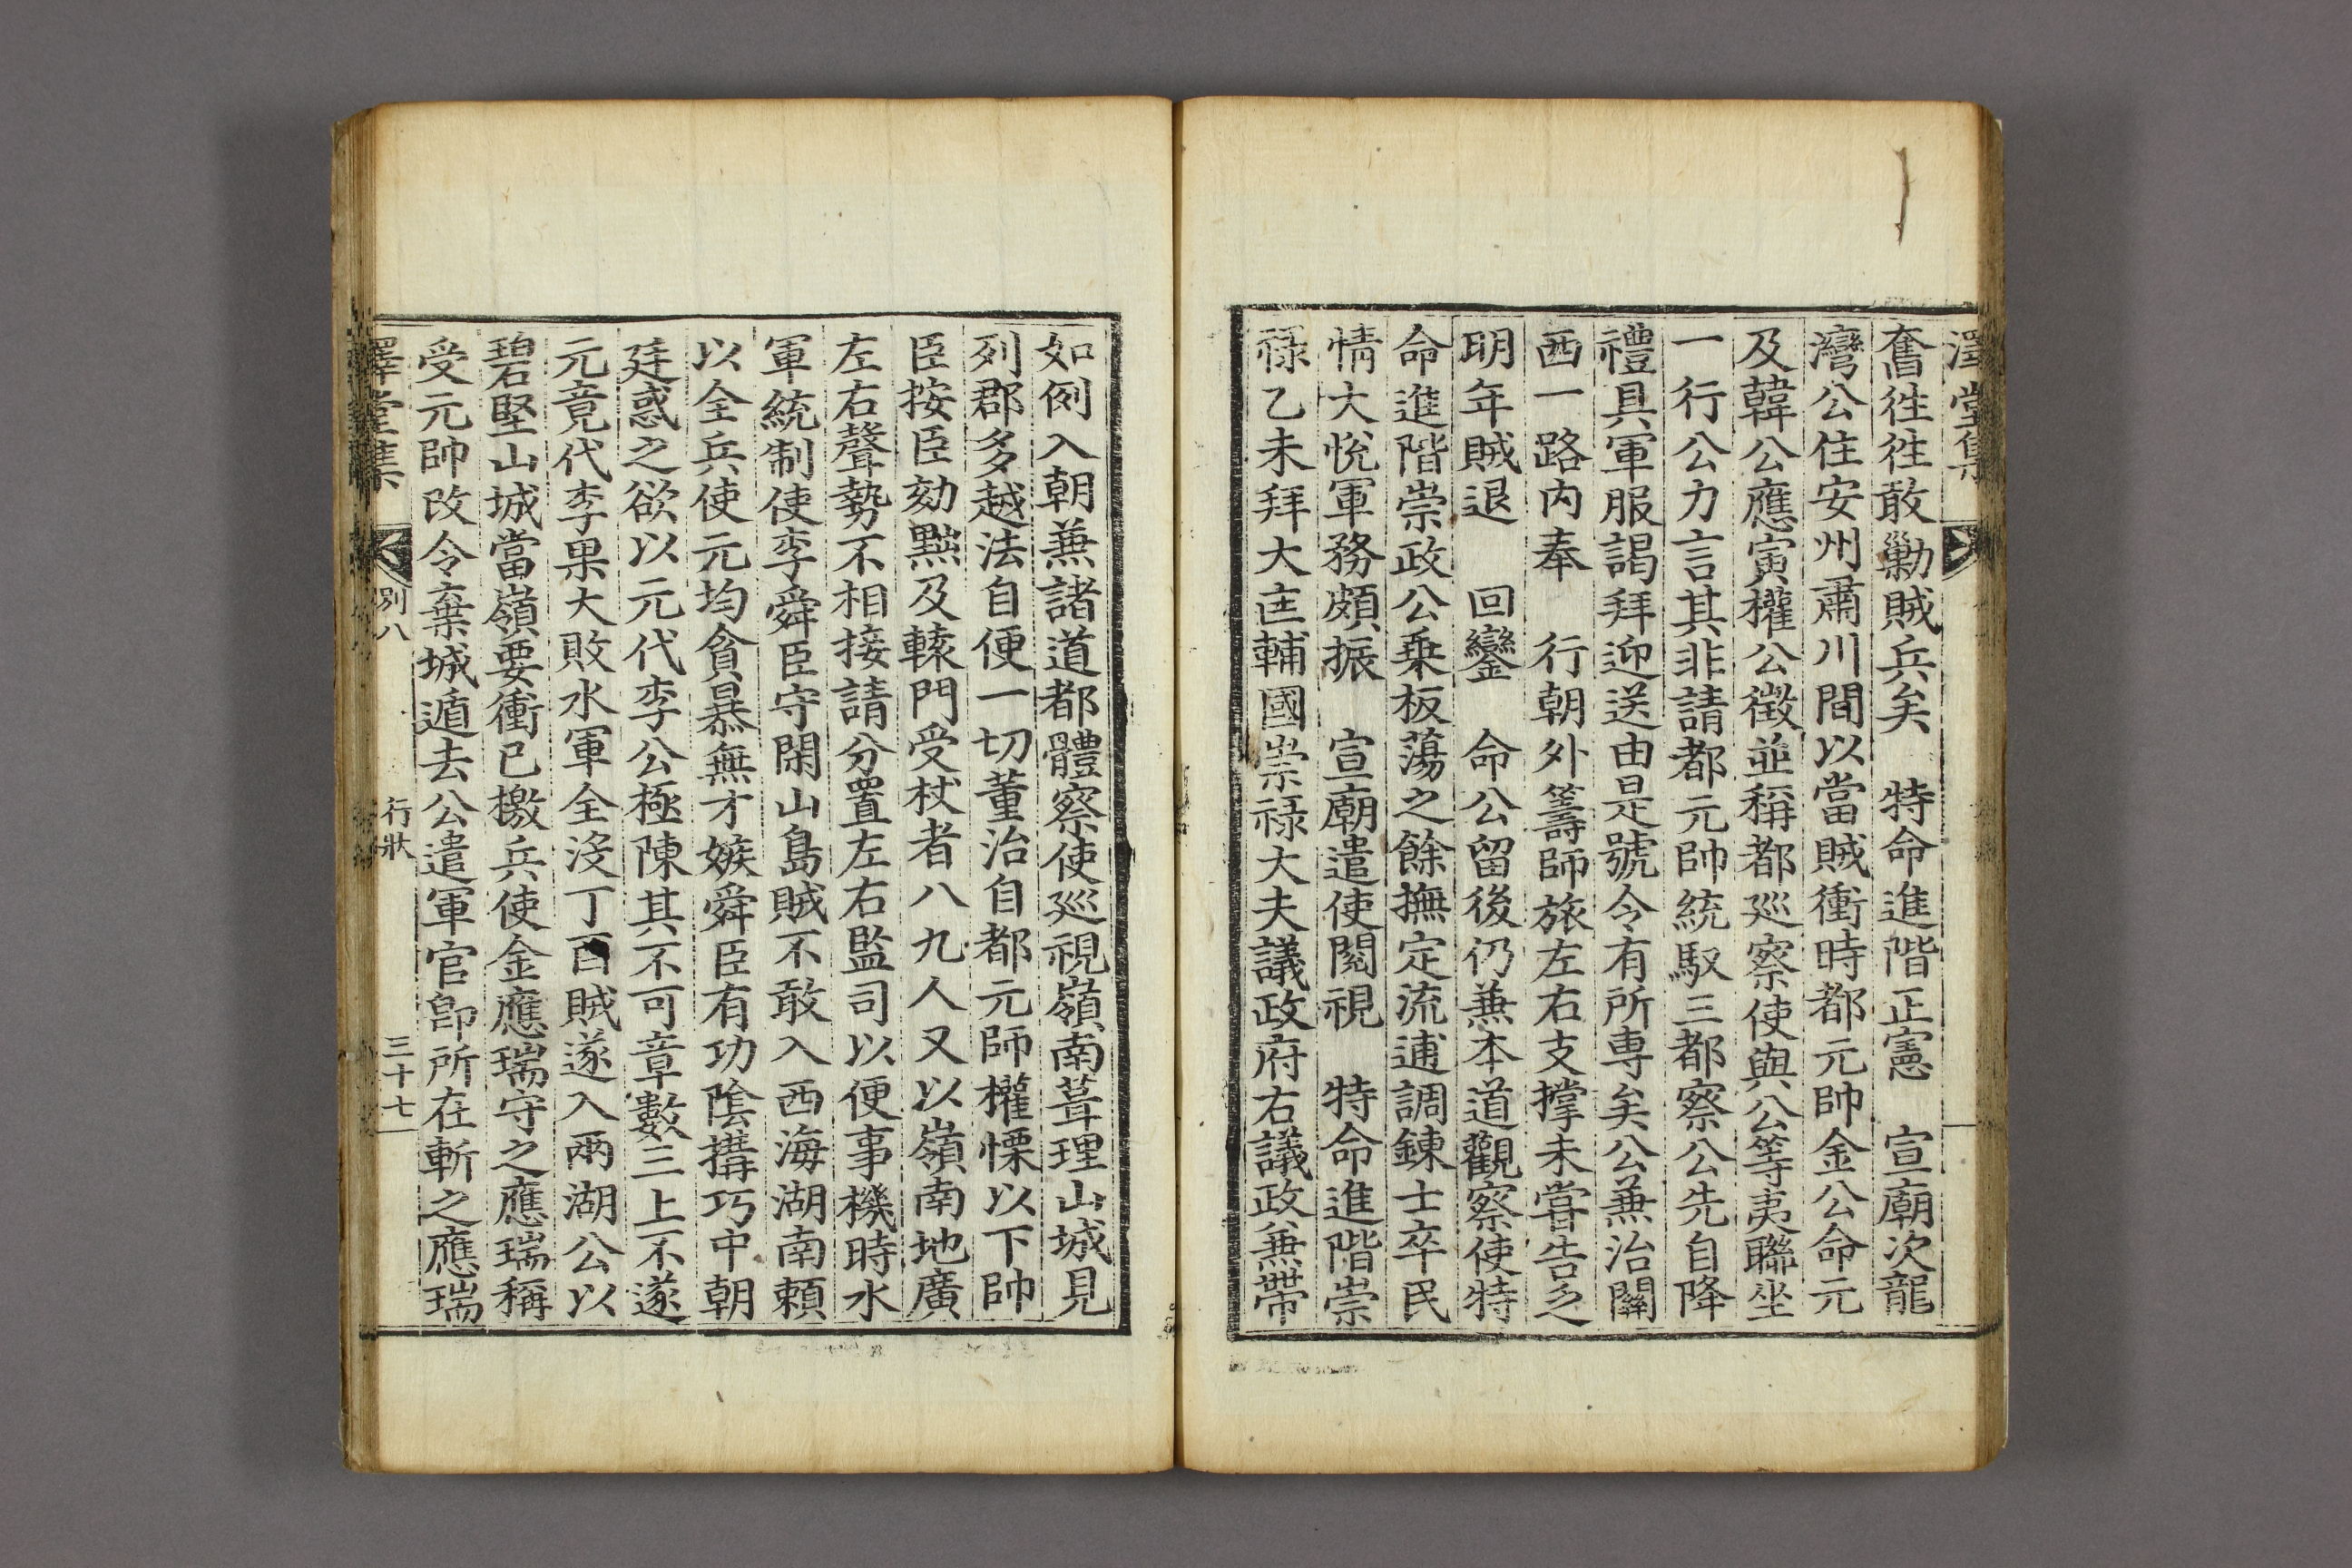 澤堂集
奮徃徃敢勦賊兵矣 特命進階正憲 宣廟次龍
灣公住安州肅川間以當賊衝時都元帥金公命元
及韓公應寅權公徵並稱都廵察使與公等夷聯坐
一行公力言其非請都元帥統馭三都察公先自降
禮具軍服謁拜迎送由是號令有所專矣公兼治關
西一路內奉 行朝外籌師旅左右支撑未嘗告乏
明年賊退 回鑾 命公留後仍兼本道觀察使特
命進階崇政公乗板蕩之餘撫定流逋調鍊士卒民
情大悅軍務頗振 宣廟遣使閱視 特命進階崇
祿乙未拜大匡輔國崇祿大夫議政府右議政兼帶
如例入朝兼諸道都體察使廵視嶺南葺理山城見
列郡多越法自便一切董治自都元帥權慄以下帥
臣按臣劾黜及轅門受杖者八九人又以嶺南地廣
左右聲勢不相接請分置左右監司以便事機時水
軍統制使李舜臣守閑山島賊不敢入西海湖南頼
以全兵使元均貪暴無才嫉舜臣有功陰搆巧中朝
廷惑之欲以元代李公極陳其不可章數三上不遂
元竟代李果大敗水軍全沒丁酉賊遂入兩湖公以
碧堅山城當嶺要衝已檄兵使金應瑞守之應瑞稱
受元帥改令棄城遁去公遣軍官卽所在斬之應瑞
澤堂集 別八 行狀 三十七